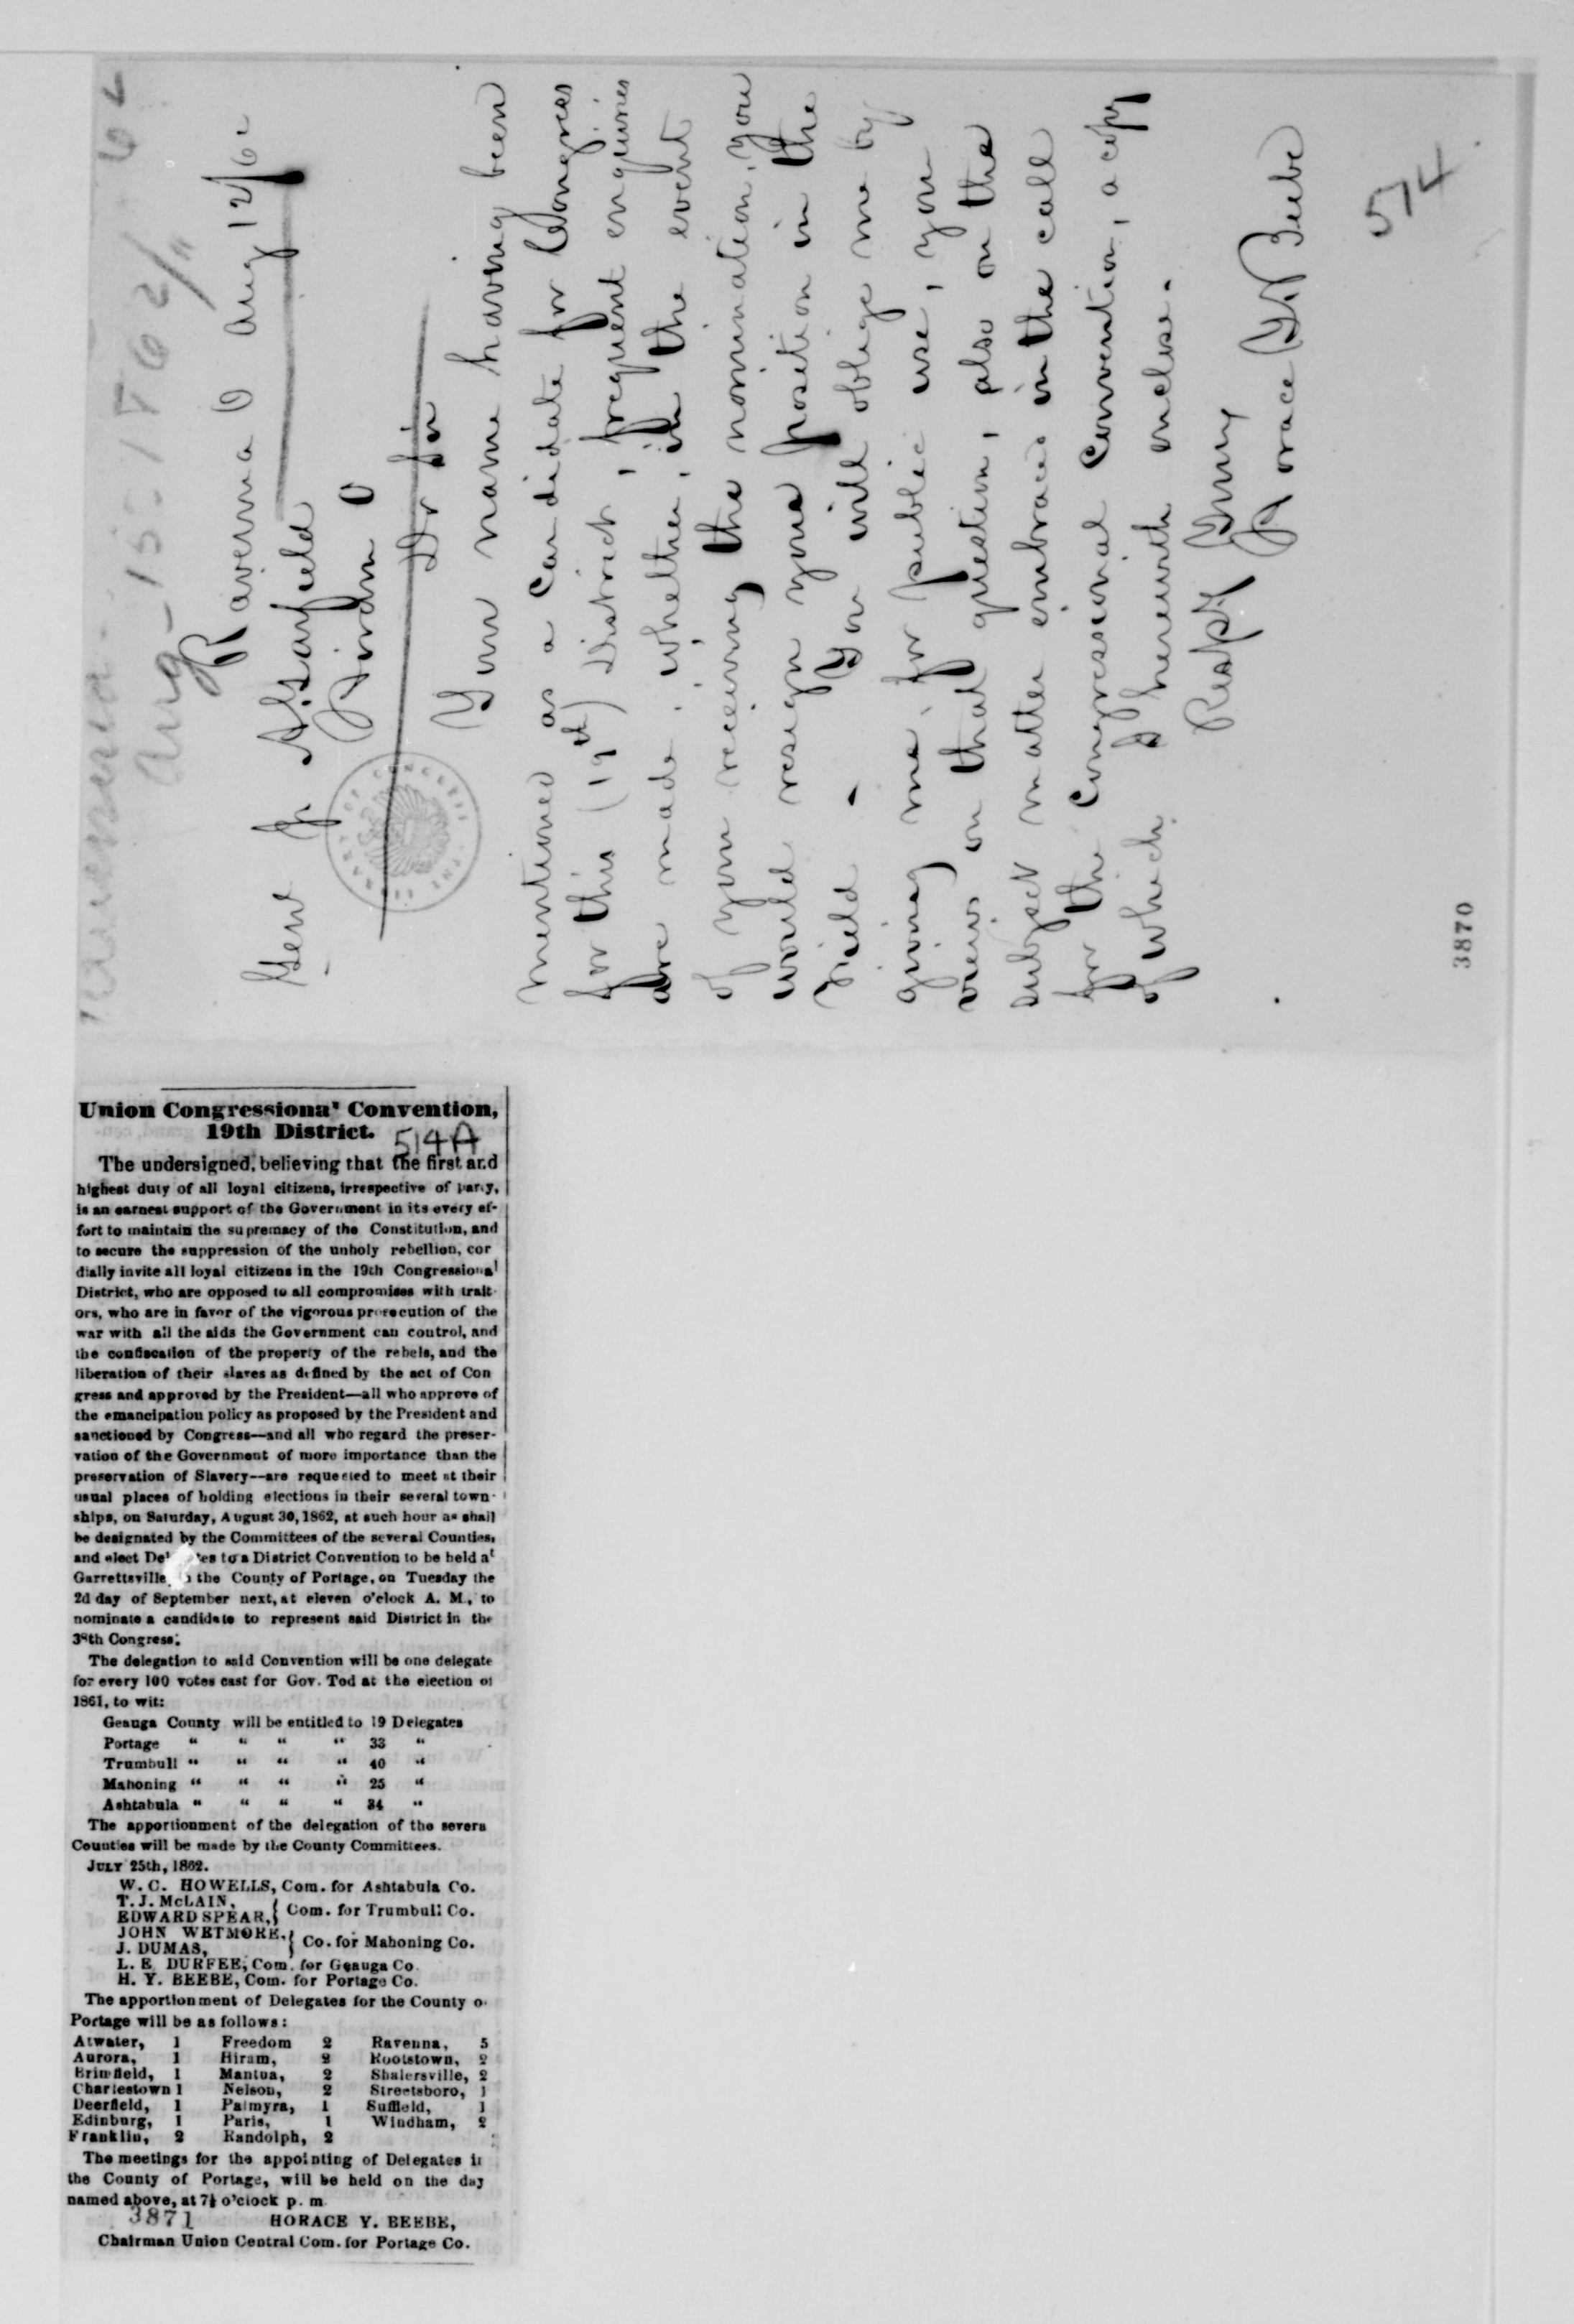 Ravenna O Aug 12/62
Genl J. A. Garfield
Hiram O
Dr Sir
Your name having been
mentioned as a Candidate for Congress
for this (19th) District, frequent enquiries
are made, whether, in the event
of your receiving the nomination, you
would resign your position in the
Field. You will oblige me by
giving me, for public use, your
views on that question, also on the
subject matter embraced in the call
for the Congressional Convention, a copy
of which I herewith enclose.
Respy Yours
Horace Y. Beebe
574
3870
Union Congressiona' Convention,
19th District.
514A
The undersigned, believing that the first and
highest duty of all loyal citizens, irrespective of party,
is an earnest support of the Government in its every ef-
fort to maintain the supremacy of the Constitution, and
to secure the suppression of the unholy rebellion, cor
dially invite all loyal citizens in the 19th Congressional
District, who are opposed to all compromises with trait-
ors, who are in favor of the vigorous prosecution of the
war with all the aids the Government can control, and
the confiscation of the property of the rebels, and the
liberation of their slaves as defined by the act of Con
gress and approved by the President—all who approve of
the emancipation policy as proposed by the President and
sanctioned by Congress—and all who regard the preser-
vation of the Government of more importance than the
preservation of Slavery—are requested to meet at their
usual places of holding elections in their several town-
ships, on Saturday, August 30, 1862, at such hour as shall
be designated by the Committees of the several Counties,
and elect Delegates to a District Convention to be held at
Garrettsville, in the County of Portage, on Tuesday the
2d day of September next, at eleven o'clock A. M., to
nominate a candidate to represent said District in the
38th Congress.
The delegation to said Convention will be one delegate
for every 100 votes cast for Gov. Tod at the election of
1861, to wit:
Geauga County will be entitled to 19 Delegates
Portage " " " " 33 "
Trumbull " " " " 40 "
Mahoning " " " " 25 "
Ashtabula " " " " 34 "
The apportionment of the delegation of the severa
Counties will be made by the County Committees.
JULY 25th, 1862.
W. C. HOWELLS, Com. for Ashtabula Co.
T. J. McLAIN,
EDWARD SPEAR, } Com. for Trumbull Co.
JOHN WETMORE,
J. DUMAS, } Co. for Mahoning Co.
L. E. DURFEE, Com. for Geauga Co.
H. Y. BEEBE, Com. for Portage Co.
The apportionment of Delegates for the County o
Portage will be as follows:
Atwater, 1 Freedom 2 Ravenna, 5
Aurora, 1 Hiram, 2 Rootstown, 2
Brimfield, 1 Mantua, 2 Shalersville, 2
Charlestown 1 Nelson, 2 Streetsboro, 1
Deerfield, 1 Palmyra, 1 Suffield, 1
Edinburg, 1 Paris, 1 Windham, 2
Franklin, 2 Randolph, 2
The meetings for the appointing of Delegates in
the County of Portage, will be held on the day
named above, at 7½ o'clock p. m
3871 HORACE Y. BEEBE,
Chairman Union Central Com. for Portage Co.